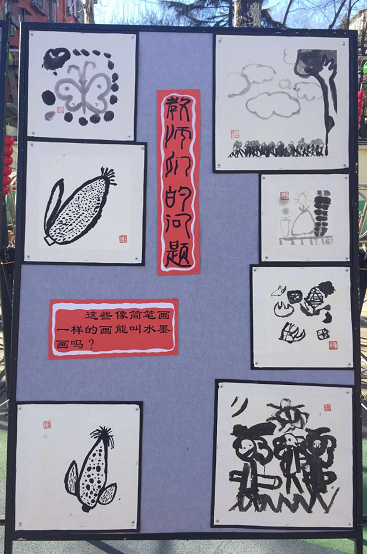 教师们的问题
这些像简笔画
一样的画能叫水墨
画吗？